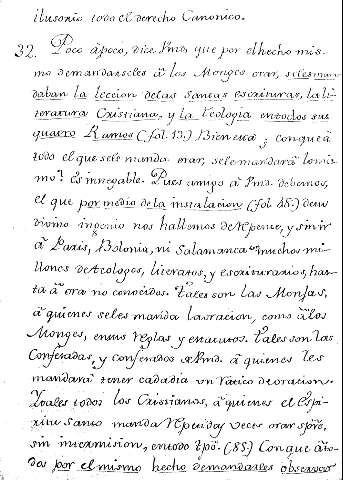 ilusorio todo el derecho Canonico.
32. Poco à poco, dice Pmd. que por el hecho mis-
mo de mandarseles â los Monges orar, se les man-
daban la leccion de las Santas escrituras, la li-
teratura Cristiana, y la Teologia en todos sus
quatro Ramos (fol. 13.) Bien está; con que â
todo el que se le manda orar, se le mandarâ lo mis-
mo? Es innegable. Pues amigo â Pmd. debemos,
el que por medio de la instalacion (fol. 15.) de su
divino ingenio nos hallemos de repente, y sin ir
â Paris, Bolonia, ni Salamanca con muchos mi-
llones de teologos, literatos, y escriturarios, has-
ta â ora no conocidos. Tales son las Monjas,
â quienes se les manda la oracion, como â los
Monges, en sus reglas y estatutos. Tales son las
Confesadas, y confesados de Pmd. â quienes les
mandarâ tener cada dia un ratico de oracion.
Y tales todos los Cristianos, â quienes el Espi-
ritu Santo manda repetidas veces orar spre.
sin intermision, en todo tpo. (85.) Con que â to-
dos por el mismo hecho de mandarles observar